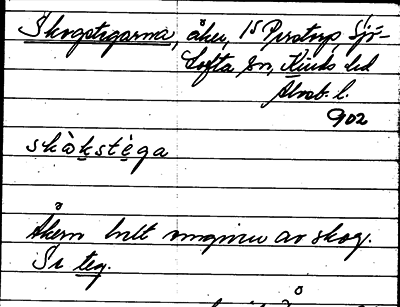 Skogstegarna, åker, 15 Perstorp, Sjö-
Lofta sn, Kinds hd
Älvsb. l.
902
skò̀kstè̱ga
Åkern helt omgiven av skog.
Se teg.